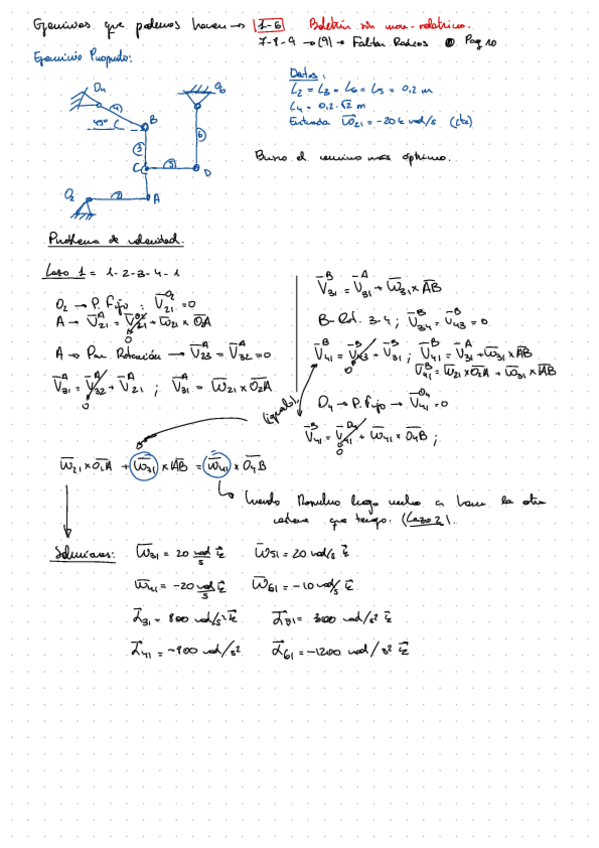 Ejercicios que podemos hacer → 1-6 Boletín sin mov-relativo.
7-8-9 → (9) → Faltan Radios Pag 10
Ejercicio Propuesto:
Datos:
L2 = L3 = L6 = L5 = 0,2 m
L4 = 0,2·√2 m
Entrada ω̄21 = -20 k rad/s (cte)
Busco el camino más óptimo.
O4
4
45°
B
3
C
5
D
6
O6
O2
2
A
Problema de velocidad.
Lazo 1 = 1-2-3-4-1
O2 → P. Fijo : V̄21^O2 = 0
A → V̄21^A = V̄21^O2 + ω̄21 × O2A
0
A → Par Rotación → V̄23^A = V̄32^A = 0
V̄31^A = V̄32^A + V̄21^A ; V̄31^A = ω̄21 × O2A
0
V̄31^B = V̄31^A + ω̄31 × AB
B - Rot. 3-4 ; V̄34^B = V̄43^B = 0
V̄41^B = V̄43^B + V̄31^B ; V̄41^B = V̄31^A + ω̄31 × AB
0
V̄41^B = ω̄21 × O2A + ω̄31 × AB
O4 → P. Fijo → V̄41^O4 = 0
V̄41^B = V̄41^O4 + ω̄41 × O4B ;
0
(igualo)
ω̄21 × O2A + ω̄31 × AB = ω̄41 × O4B
la otra
cadena que tengo. (Lazo 2).
Soluciones: ω̄31 = 20 rad/s k̄ ω̄51 = 20 rad/s k̄
ω̄41 = -20 rad/s k̄ ω̄61 = -10 rad/s k̄
ᾱ31 = 800 rad/s² k̄
ᾱ61 = -1200 rad/s² k̄